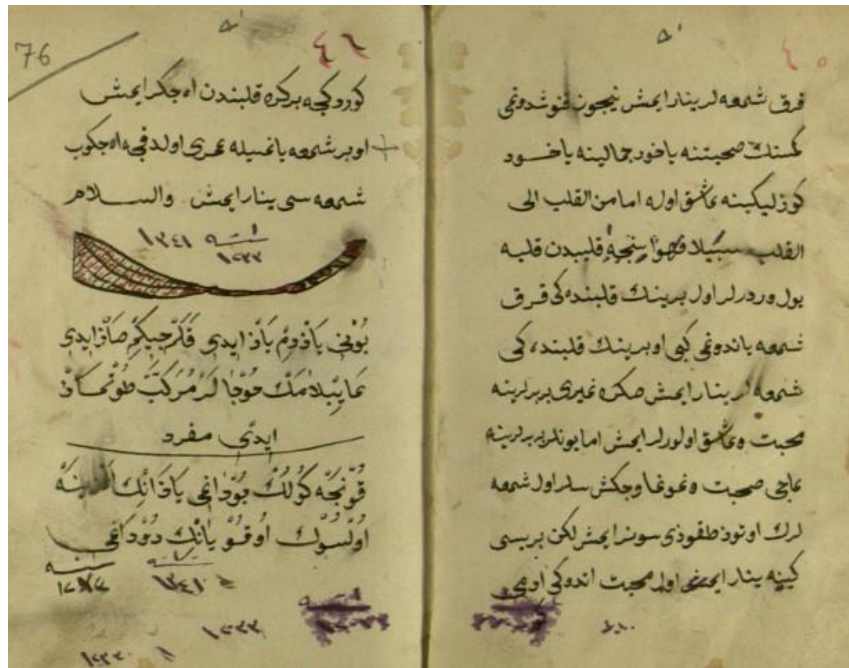 ٤٠
قرق شمعه لر ينار ايمش نيچون قنوشدوغمى
كمسنك صحبتنه ياخود جمالينه ياخود
كوزليكينه عاشق اوله اما من القلب الى
القلب سبيلا قلبيدن قلبه
يول وردرلر اول برينك قلبنده كى قرق
شمعه ياندوغى كبى او برينك قلبنده كى
شمعه لر ينار ايمش صكره غيرى بربرلرينه
محبت وعاشق اولورلر ايمش اما بونلر بربرلرينه
شمعه
لرك اوتوز طقوزى سونر ايمش لكن بريسى
كينه ينار ايمش اول محبت اندوكى
٤٦
76
بركره قلبندن اه چكر ايمش
او بر شمعه يانمسيله عمرى اولدقچه اه چكوب
شمعه سى ينار ايمش والسلام
سنه ١٢٤١
١٢٣٣
بونى يازدوم ياز ايدى قلرجيكم صاز ايدى
عايبلامك خوجالر مركب طوتماز
ايدى مفرد
قونجه كولك بوداغى
اولسون دوداغى
سنه
١٢٤١
١٢٣٣
١٢٣٣